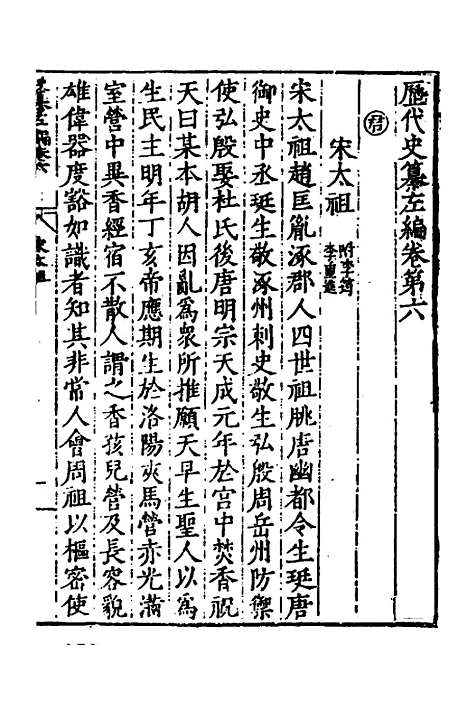 歷代史纂左編卷第六
君
宋太祖 附李筠 李重進
宋太祖趙匡胤涿郡人四世祖朓唐幽都令生珽唐
御史中丞珽生敬涿州刺史敬生弘殷周岳州防禦
使弘殷娶杜氏後唐明宗天成元年於宮中焚香祝
天曰某本胡人因亂為衆所推願天早生聖人以為
生民主明年丁亥帝應期生於洛陽夾馬營赤光滿
室營中異香經宿不散人謂之香孩兒營及長容貌
雄偉器度豁如識者知其非常人會周祖以樞密使
宋太祖
一